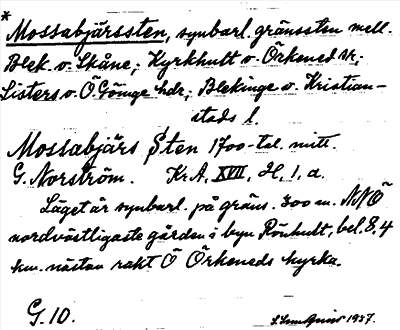 *
Mossabjärssten, synbarl. gränssten mell.
Blek. o. Skåne; Kyrkhult o. Örkened snr;
Listers o. Ö. Göinge hdr; Blekinge o. Kristian-
stads l.
Mossabjärs Sten 1700-tal. mitt.
G. Norström. Kr.A, XVII, H, 1, a.
Läget är synbarl. på gräns. 300 m. NNÖ
nordvästligaste gården i byn Rönhult, bel. 8,4
km. nästan rakt Ö Örkeneds kyrka.
G. 10.
1937.